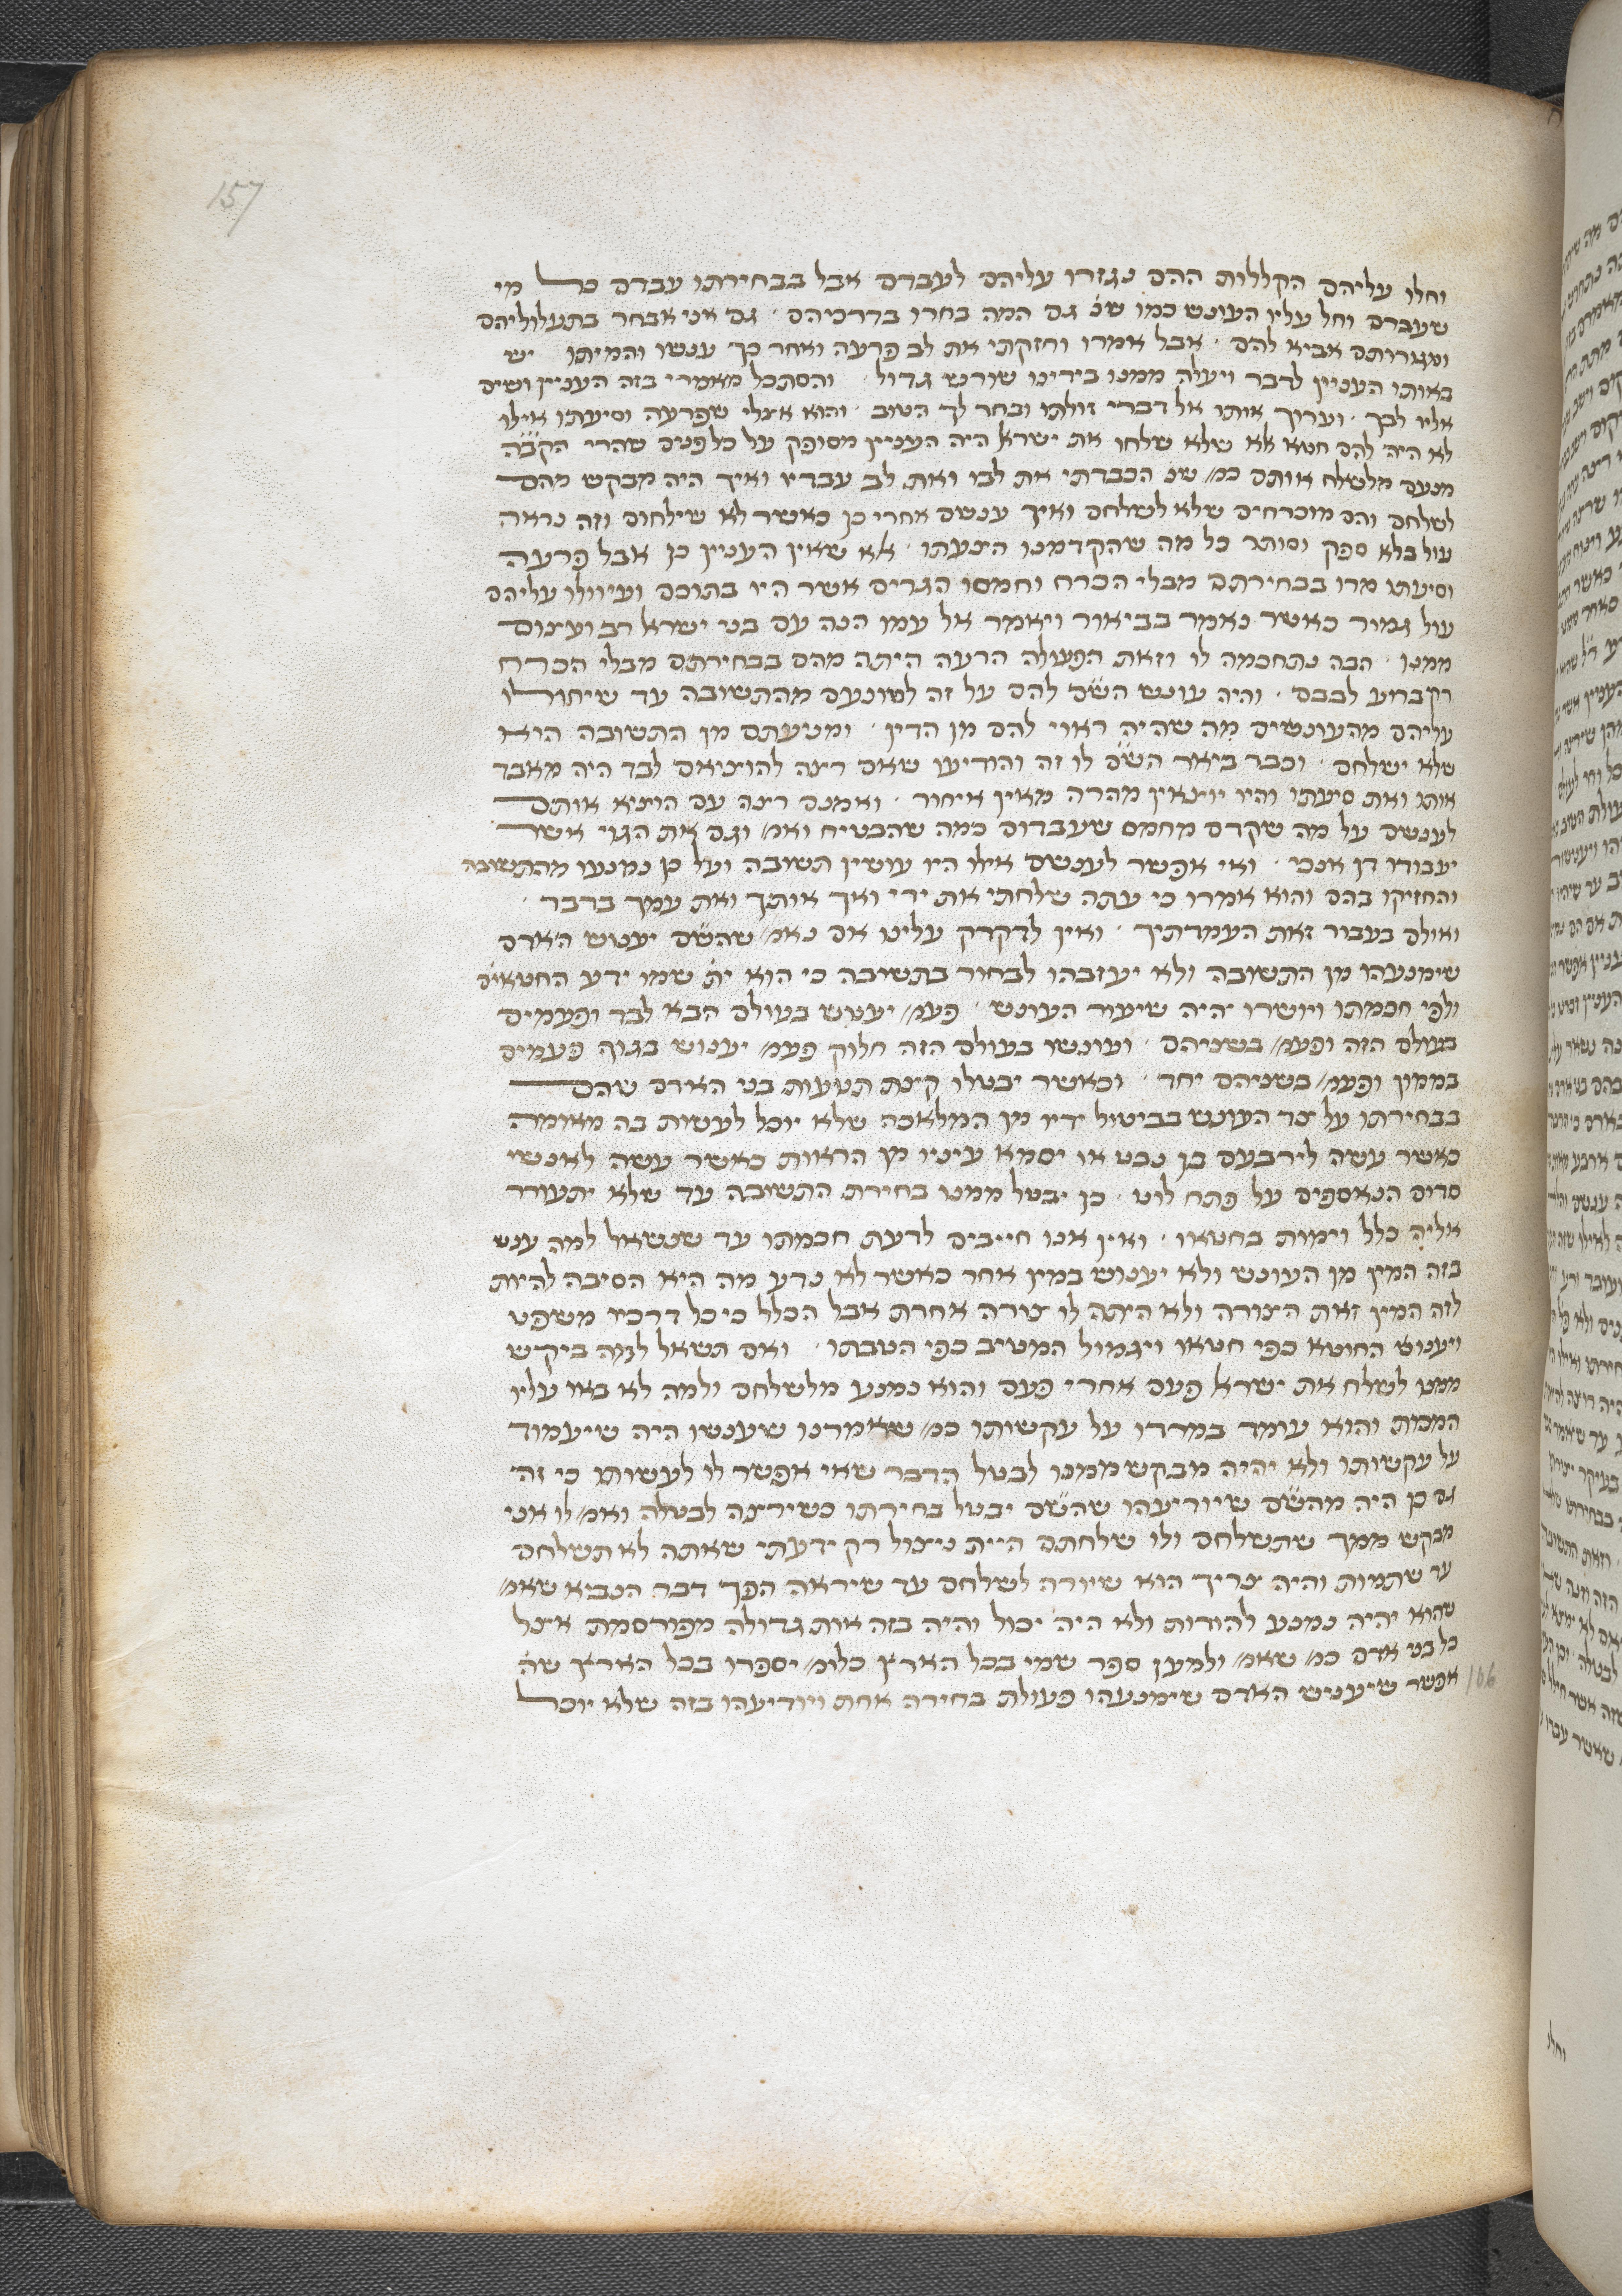 157
וחלו עליהם הקללות ההם נגזרו עליהם לעברם אבל בבחירתו עברם כל מי
שעברם וחל עליו העונש כמו שנ' גם המה בחרו בדרכיהם · גם אני אבחר בתעלוליהם
ומגורותם אביא להם · אבל אמרו וחזקתי את לב פרעה ואחר כך ענשו והמיתו יש
באותו העניין לדבר ויעלה ממנו בידינו שורש גדול · והסתכל מאמרי בזה העניין ושים
אליו לבך · וערוך אותו אל דברי זולתו ובחר לך הטוב · והוא אצלי שפרעה וסיעתו אילו
לא היה להם חטא אלא שלא שלחו את ישראל היה העניין מסופק על כל פנים שהרי הקב"ה
מנעם מלשלח אותם כמ' שנ' הכבדתי את לבו ואת לב עבדיו ואיך היה מבקש מהם
לשלחם והם מוכרחים שלא לשלחם ואיך ענשם אחרי כן כאשר לא שילחום וזה נראה
עול בלא ספק וסותר כל מה שהקדמנו הצעתו · אלא שאין העניין כן אבל פרעה
וסיעתו מרו בבחירתם מבלי הכרח וחמסו הגרים אשר היו בתוכם ועיוולו עליהם
עול גמור כאשר נאמר בביאור ויאמר אל עמו הנה עם בני ישראל רב ועצום
ממנו · הבה נתחכמה לו וזאת הפעולה הרעה היתה מהם בבחירתם מבלי הכרח
רק ברוע לבבם · והיה עונש הש"ם להם על זה לשונעם מהתשובה עד שיחולו
עליהם מהעונשים מה שהיה ראוי להם מן הדין · ומנעתם מן התשובה היא
שלא ישלחם · וכבר ביאר הש"ם לו זה והודיעו שאם רצה להוציאם לבד היה מאבד
אותו ואת סיעתו והיו יוצאין מהרה מאין איחור · ואמנם רצה עם הוציא אותם
לענשם על מה שקדם מחמס שעבדום כמה שהבטיח ואמ' וגם את הגוי אשר
יעבודו דן אנכי · ואי אפשר לענשם אילו היו עושין תשובה ועל כן נמנעו מהתשובה
והחזיקו בהם והוא אמרו כי עתה שלחתי את ידי ואך אותך ואת עמך בדבר ·
ואולם בעבור זאת העמדתיך · ואין לדקדק עלינו אם נאמ' שהש"ם יענוש האדם
שימנעהו מן התשובה ולא יעזבהו לבחור בתשובה כי הוא ית' שמו ידע החטאים
ולפי חכמתו ויושרו יהיה שיעור העונש · פעמ' יענוש בעולם הבא לבד ופעמים
בעולם הזה ופעמ' בשניהם · ועונשו בעולם הזה חלוק פעמ' יענוש בגוף פעמים
בממון ופעמ' בשניהם יחד · וכאשר יבטלו קצת תנועות בני האדם שהם
בבחירתו על צד העונש בביטול ידיו מן המלאכה שלא יוכל לעשות בה מאומה
כאשר עשה לירבעם בן נבט או יסמא עיניו מן הראות כאשר עשה לאנשי
סדום הנאספים על פתח לוט · כן יבטל ממנו בחירת התשובה עד שלא יתעורר
אליה כלל וימות בחטאו · ואין אנו חייבים לדעת חכמתו עד שנשאל למה ענש
בזה המין מן העונש ולא יענוש במין אחר כאשר לא נדע מה היא הסיבה להיות
לזה המין זאת הצורה ולא היתה לו צורה אחרת אבל הכלל כי כל דרכיו משפט
ויענוש החוטא כפי חטאו ויגמול המטיב כפי הטבתו · ואם תשאל למה ביקש
ממנו לשלח את ישראל פעם אחרי פעם והוא נמנע מלשלחם ולמה לא באו עליו
המכות והוא עומד במרדו על עקשותו כמ' שאמרנו שענשו היה שיעמוד
על עקשותו ולא יהיה מבקש ממנו לבטל הדבר שאי אפשר לו לעשותו כי זה
גם כן היה מהש"ם שיודיעהו שהש"ם יבטל בחירתו כשירצה לבטלה ואמ' לו אני
מבקש ממך שתשלחם ולו שלחתם היית ניצול רק ידעתי שאתה לא תשלחם
עד שתמות והיה צריך הוא שיורה לשלחם עד שיראה הפך דבר הנביא שאמ'
שהוא יהיה נמנע להודות ולא היה יכול והיה בזה אות גדולה מפורסמת אצל
כל בני אדם כמ' שאמ' ולמען ספר שמי בכל הארץ כלומ' יספרו בכל הארץ שה'
אפשר שיענש האדם שימנעהו פעולת בחירה אחת ויודיעהו בזה שלא יוכל
106